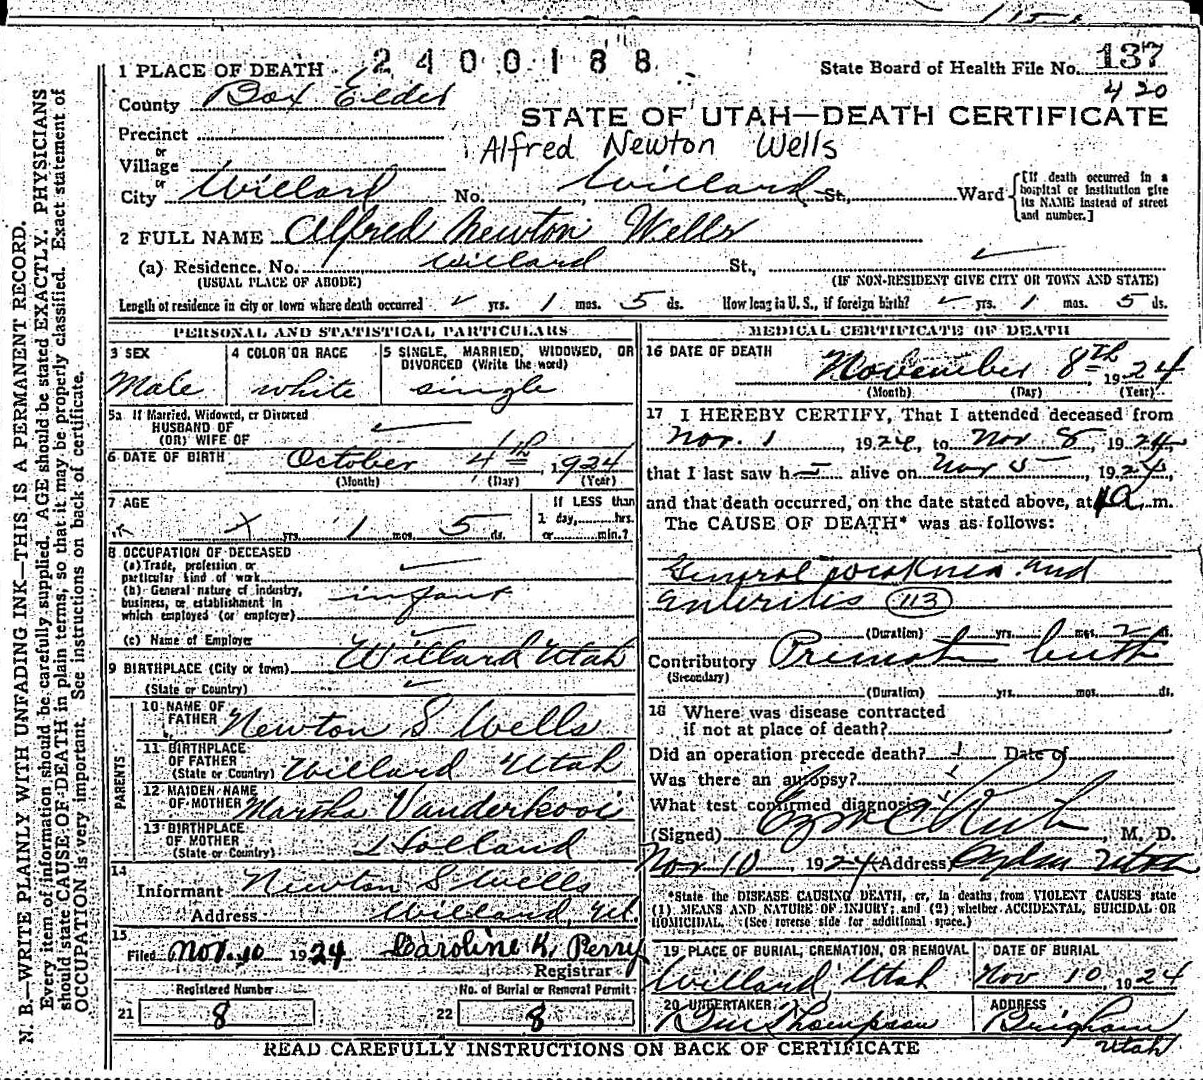 2400188
1 PLACE OF DEATH
State Board of Health File No. 137
420
County Box Elder
STATE OF UTAH—DEATH CERTIFICATE
Precinct
Alfred Newton Wells
or
Village
or
City Willard No. Willard St., Ward
[If death occurred in a hospital or institution give its NAME instead of street and number.]
2 FULL NAME Alfred Newton Wells
(a) Residence. No. Willard St.,
(USUAL PLACE OF ABODE) (IF NON-RESIDENT GIVE CITY OR TOWN AND STATE)
Length of residence in city or town where death occurred ✓ yrs. 1 mos. 5 ds. How long in U. S., if foreign birth? ✓ yrs. 1 mos. 5 ds.
PERSONAL AND STATISTICAL PARTICULARS
3 SEX
Male
4 COLOR OR RACE
white
5 SINGLE, MARRIED, WIDOWED, OR
DIVORCED (Write the word)
single
5a If Married, Widowed, or Divorced
HUSBAND OF
(OR) WIFE OF
6 DATE OF BIRTH October 4th, 1924
(Month) (Day) (Year)
7 AGE
yrs. 1 mos. 5 ds.
If LESS than
1 day, hrs.
or min.?
8 OCCUPATION OF DECEASED
(a) Trade, profession or
particular kind of work
(b) General nature of industry,
business, or establishment in
which employed (or employer) infant
(c) Name of Employer
9 BIRTHPLACE (City or town) Willard Utah
(State or Country)
PARENTS
10 NAME OF
FATHER Newton S Wells
11 BIRTHPLACE
OF FATHER
(State or Country) Willard Utah
12 MAIDEN NAME
OF MOTHER Martha Vanderkooi
13 BIRTHPLACE
OF MOTHER
(State or Country) Holland
14
Informant Newton S Wells
Address Willard, Ut.
15
Filed Nov. 10 1924 Caroline K. Perry
Registrar
Registered Number No. of Burial or Removal Permit
21 8 22 8
MEDICAL CERTIFICATE OF DEATH
16 DATE OF DEATH
November 8th, 1924
(Month) (Day) (Year)
17 I HEREBY CERTIFY, That I attended deceased from
Nov. 1, 1924, to Nov 8, 1924,
that I last saw h alive on Nov 5, 1924,
and that death occurred, on the date stated above, at 1 a. m.
The CAUSE OF DEATH* was as follows:
General weakness and
Enteritis (113)
(Duration) yrs. mos. ds.
Contributory Premature birth
(Secondary)
(Duration) yrs. mos. ds.
18 Where was disease contracted
if not at place of death?
Did an operation precede death? Date of
Was there an autopsy?
What test confirmed diagnosis
(Signed) , M. D.
Nov 10, 1924 (Address) Ogden Utah
*State the DISEASE CAUSING DEATH, or, in deaths from VIOLENT CAUSES state
(1) MEANS AND NATURE OF INJURY; and (2) whether ACCIDENTAL, SUICIDAL OR
HOMICIDAL. (See reverse side for additional space.)
19 PLACE OF BURIAL, CREMATION, OR REMOVAL
Willard, Utah
DATE OF BURIAL
Nov 10, 1924
20 UNDERTAKER
Thompson
ADDRESS
Brigham
Utah
READ CAREFULLY INSTRUCTIONS ON BACK OF CERTIFICATE
N. B.—WRITE PLAINLY WITH UNFADING INK—THIS IS A PERMANENT RECORD.
Every item of information should be carefully supplied. AGE should be stated EXACTLY. PHYSICIANS
should state CAUSE OF DEATH in plain terms, so that it may be properly classified. Exact statement of
OCCUPATION is very important. See instructions on back of certificate.